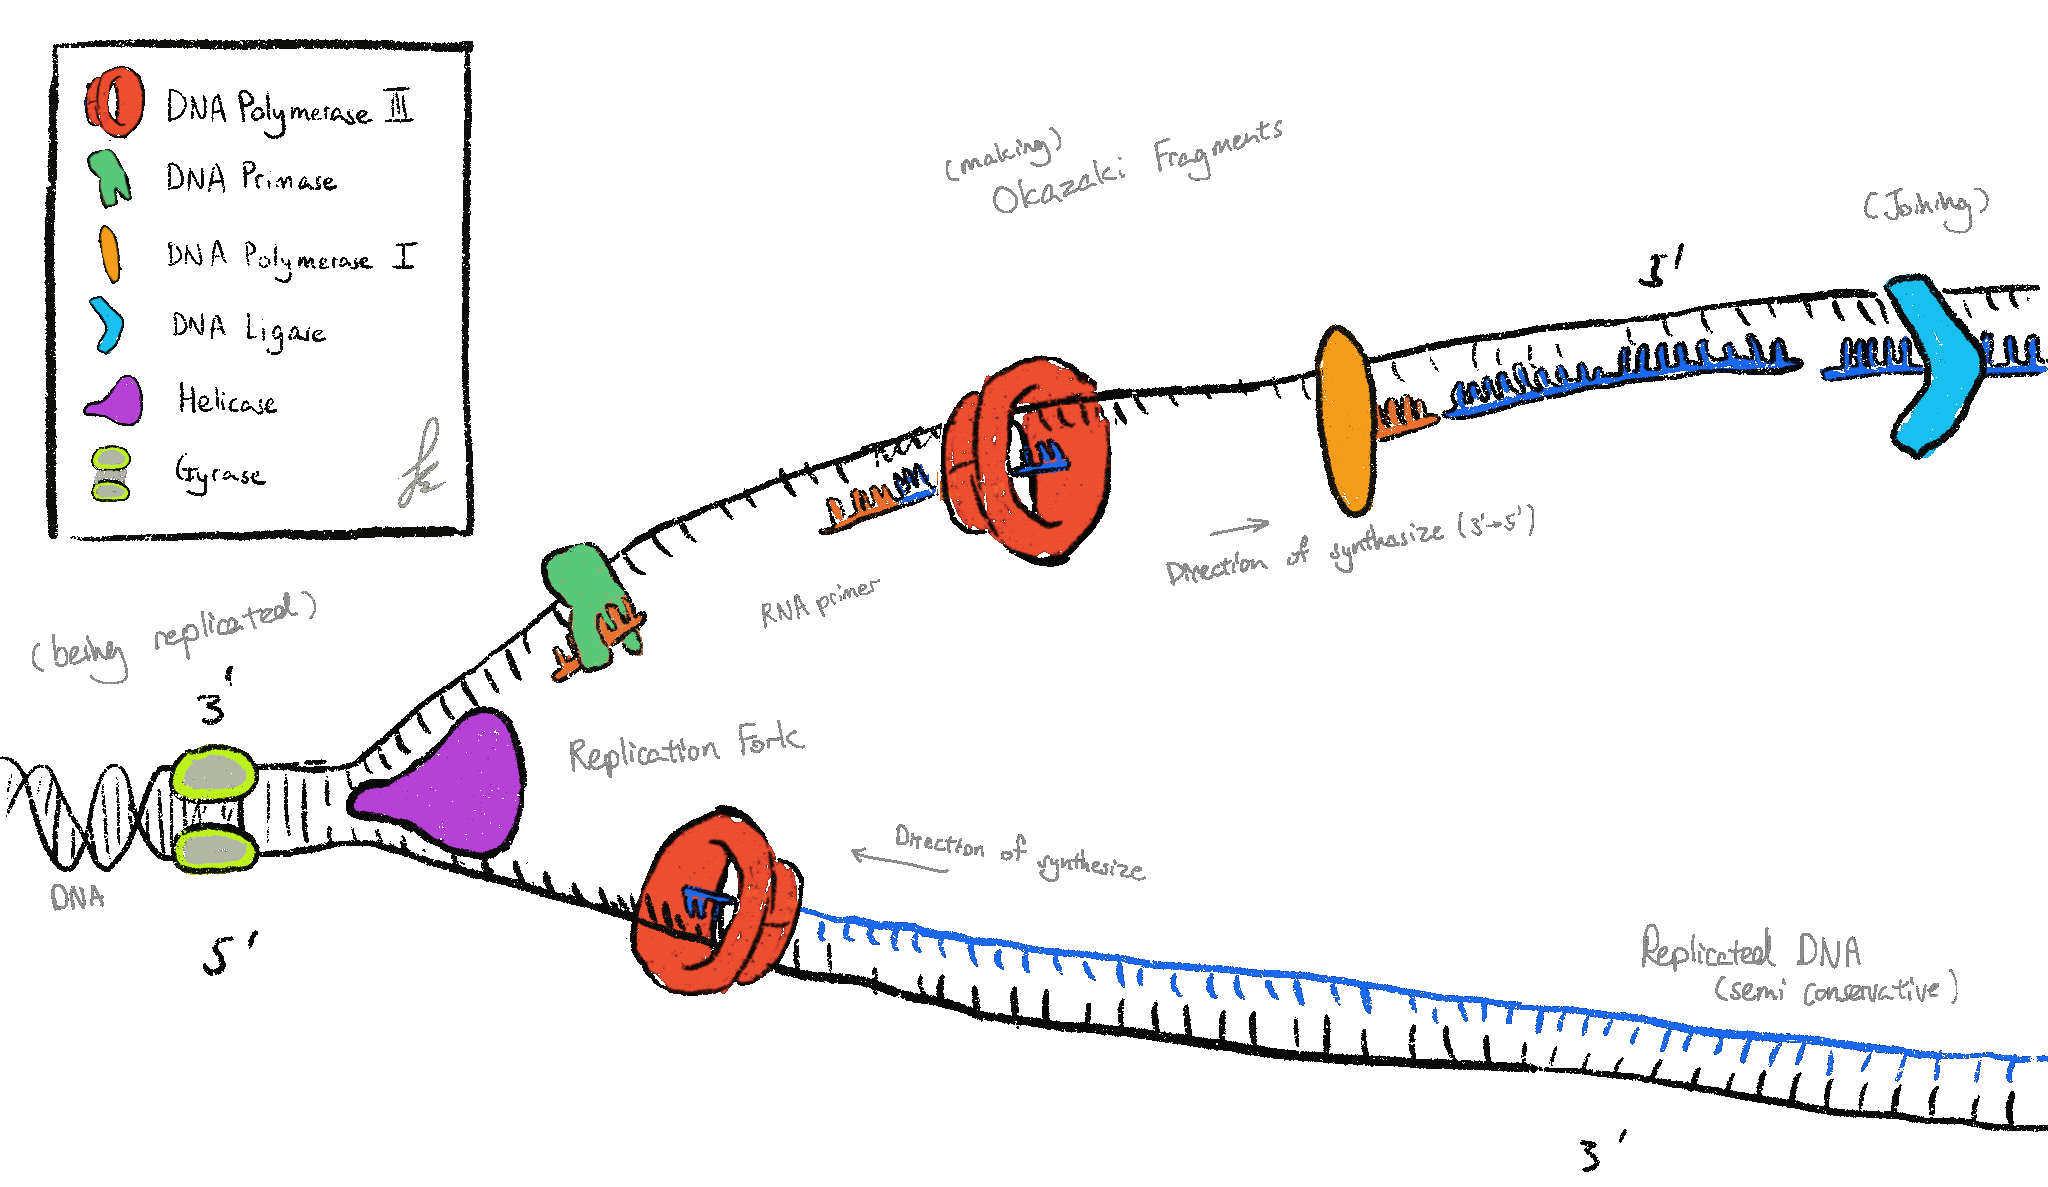 DNA Polymerase III
DNA Primase
DNA Polymerase I
DNA Ligase
Helicase
Gyrase
(making)
Okazaki Fragments
(Joining)
5'
Direction of synthesize (3'→5')
RNA primer
(being replicated)
3'
Replication Fork
DNA
5'
Direction of synthesize
Replicated DNA
(semi conservative)
3'